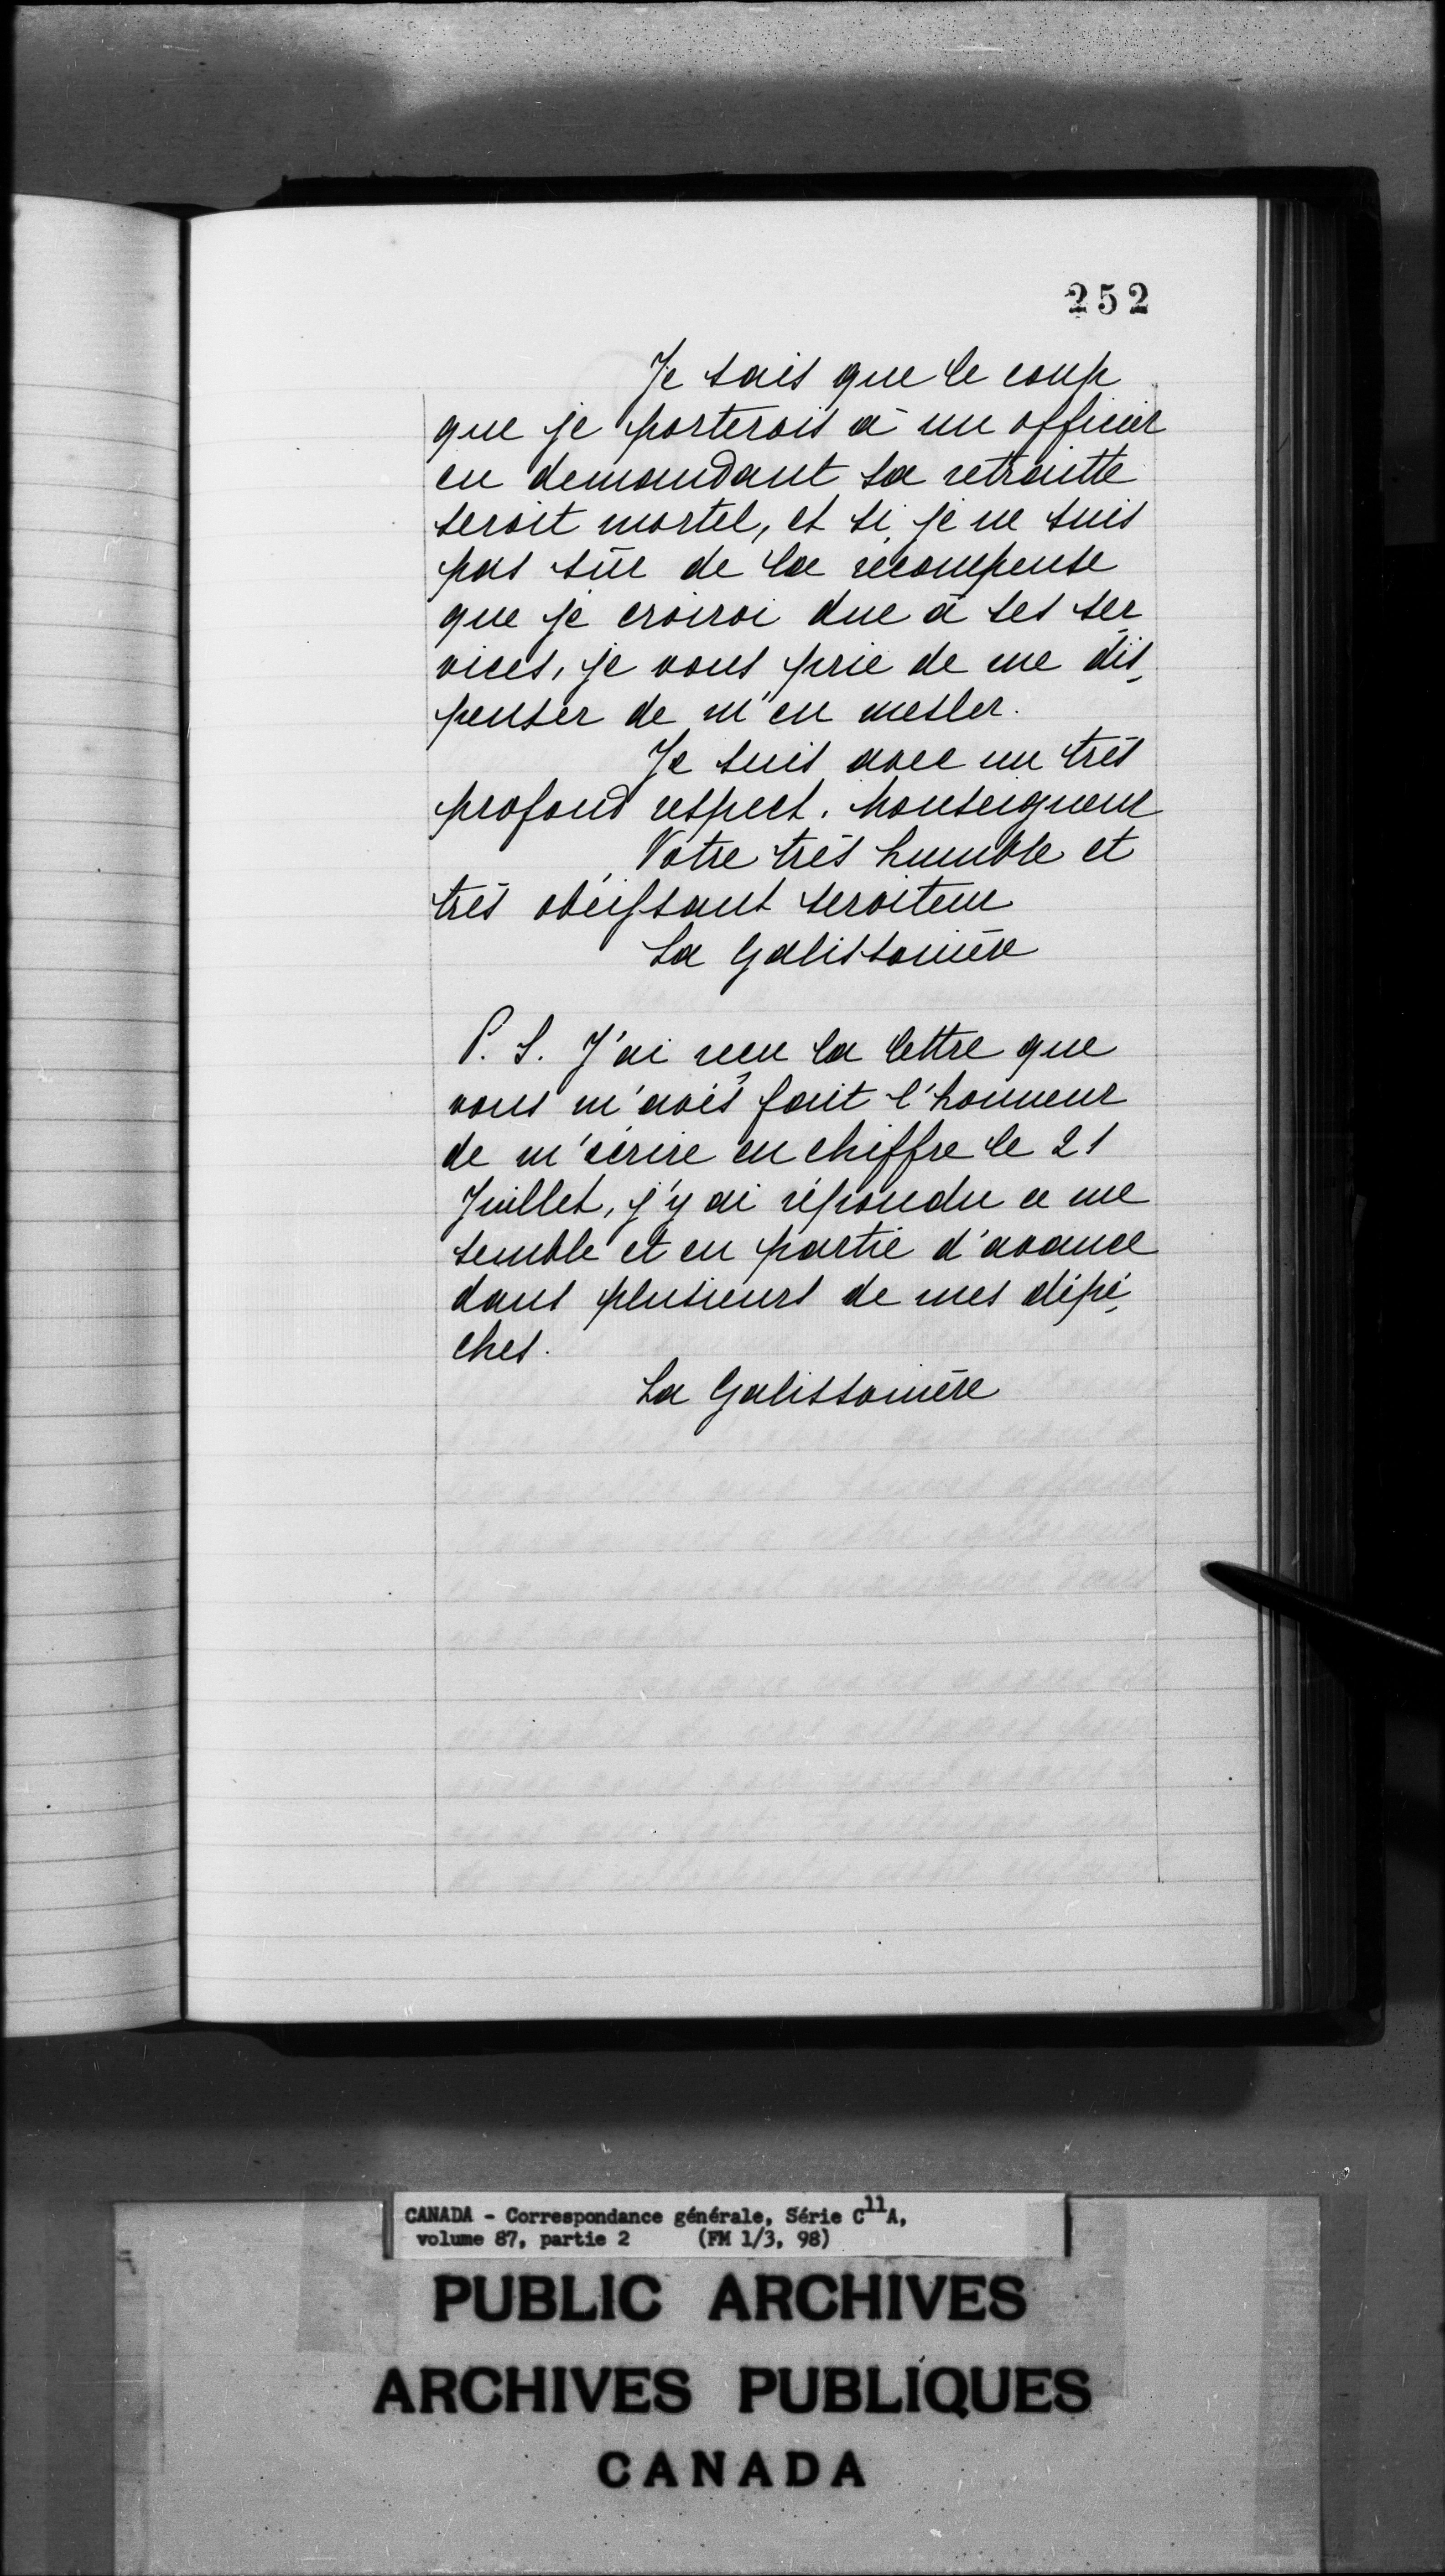 252
Je sais que le coup
que je porterois à un officier
en demandant sa retraitte
seroit mortel, et si je ne suis
pas sûr de la recompense
que je croirai due à ses ser
vices, je vous prie de me dis
penser de m'en mesler.
Je suis avec un très
profond respect. Monseigneur
Votre très humble et
très obéissant serviteur
La Galissonière
P. S. J'ai reçu la lettre que
vous m'avés fait l'honneur
de m'écrire en chiffre le 21
Juillet, j'y ai répondu ce me
semble et en partie d'avance
dans plusieurs de mes dépê
ches.
La Galissonière
CANADA - Correspondance générale, Série C11A,
volume 87, partie 2 (FM 1/3, 98)
PUBLIC ARCHIVES
ARCHIVES PUBLIQUES
CANADA